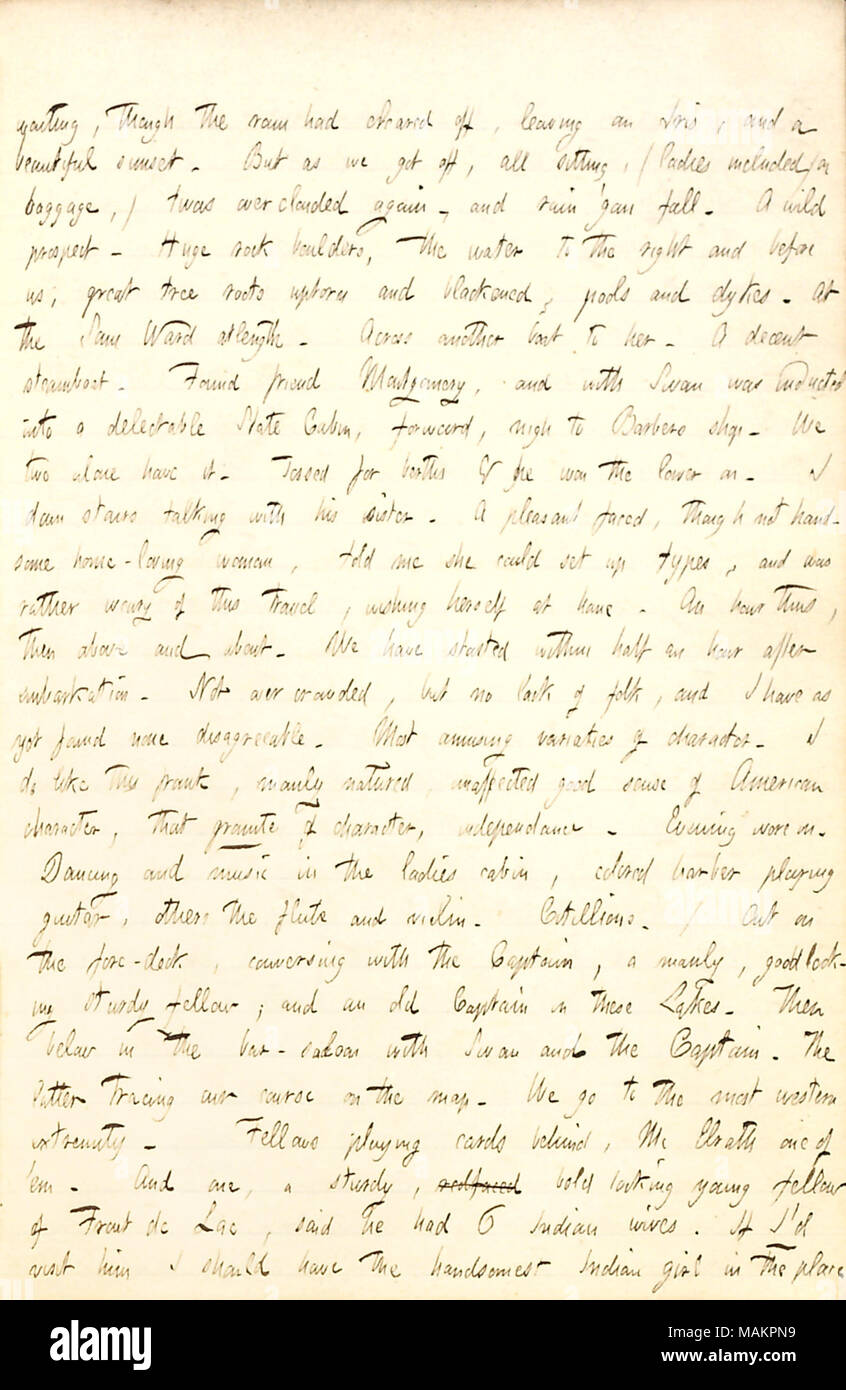 waiting, though the rain had cleared off, leaving an Iris, and a
beautiful sunset. But as we got off, all sitting, (ladies included on
baggage,) twas over clouded again, and rain 'gan fall. A wild
prospect. Huge rock boulders, the water to the right and before
us; great tree roots uptorn and blackened, pools and dykes. At
the Sam Ward at length. Across another boat to her. A decent
steamboat. Found friend Montgomery, and with Swan was inducted
into a delectable State Cabin, forward, nigh to Barbers shop. We
two alone have it. Tossed for berths & he won the lower on. I
down stairs talking with his sister. A pleasant faced, though not hand-
some home-loving woman, told me she could set up types, and was
rather weary of this travel, wishing herself at home. An hour thus,
then above and about. We have started within half an hour after
embarkation. Not over crowded, but no lack of folk, and I have as
yet found none disagreeable. Most amusing varieties of character. I
do like this frank, manly natured, unaffected good sense of American
character, that granite of character, independance. Evening wore on.
Dancing and music in the ladies cabin, colored barber playing
guitar, others the flute and violin. Cotillions. / Out on
the fore-deck, conversing with the Captain, a manly, good look-
ing sturdy fellow; and an old Captain on these Lakes. Then
below in the bar-saloon with Swan and the Captain. The
latter tracing our course on the map. We go to the most western
extremity. Fellows playing cards behind, Mc Elrath one of
'em. And one, a sturdy, redfaced bold looking young fellow
of Front de Lac, said he had 6 Indian wives. If I'd
visit him I should have the handsomest Indian girl in the place
alamy
Image ID: MAKPN9
www.alamy.com